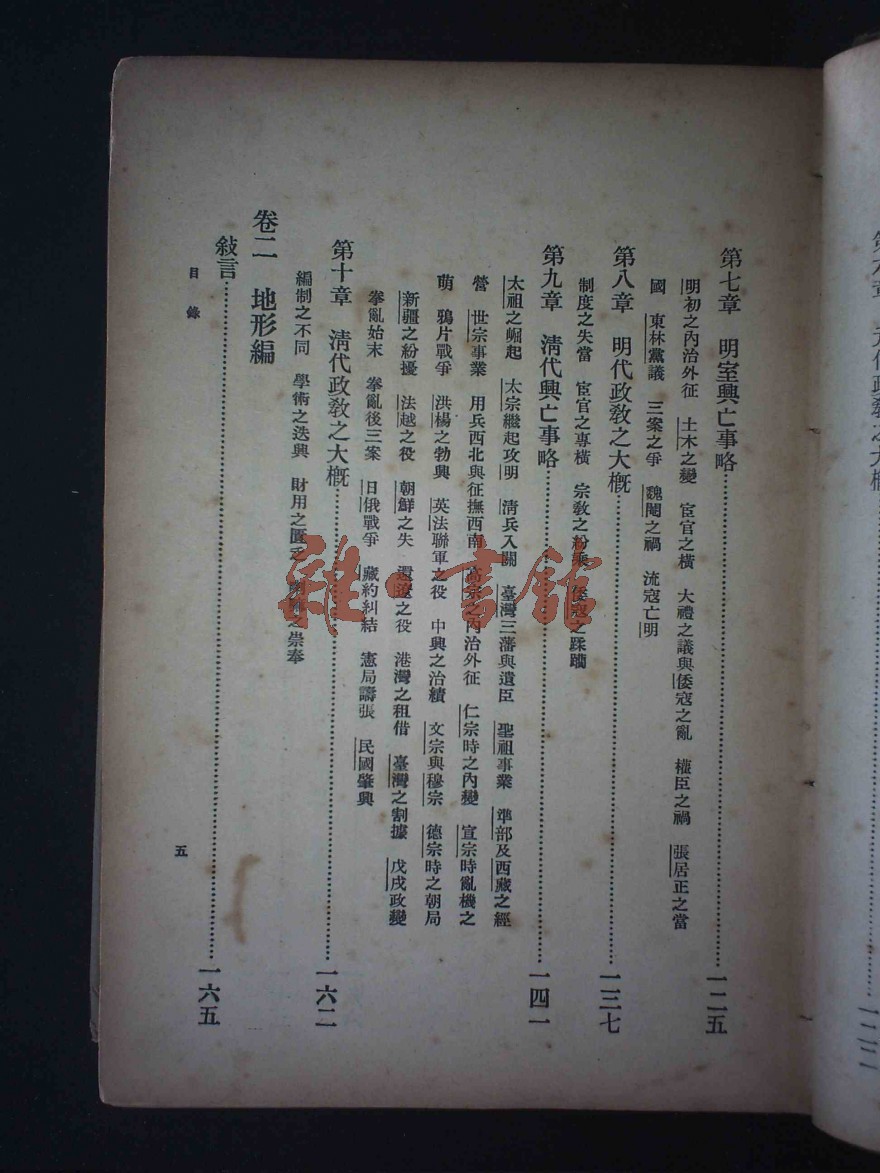 第七章 明室興亡事略 一二五
明初之內治外征 土木之變 宦官之橫 大禮之議與倭寇之亂 權臣之禍 張居正之當
國 東林黨議 三案之爭 魏閹之禍 流寇亡明
第八章 明代政敎之大槪 一三七
制度之失當 宦官之專橫 宗敎之紛乘 倭寇之蹂躪
第九章 清代興亡事略 一四一
太祖之崛起 太宗繼起攻明 清兵入關 臺灣三藩與遺臣 聖祖事業 準部及西藏之經
營 世宗事業 用兵西北與征撫西南 高宗之內治外征 仁宗時之內變 宣宗時亂機之
萌 鴉片戰爭 洪楊之勃興 英法聯軍之役 中興之治績 文宗與穆宗 德宗時之朝局
新疆之紛擾 法越之役 朝鮮之失 還遼之役 港灣之租借 臺灣之割據 戊戌政變
拳亂始末 拳亂後三案 日俄戰爭 藏約糾結 憲局譸張 民國肇興
第十章 清代政敎之大槪 一六二
編制之不同 學術之迭興 財用之匱乏 之崇奉
卷二 地形編
敍言 一六五
目錄
五
雜·書館